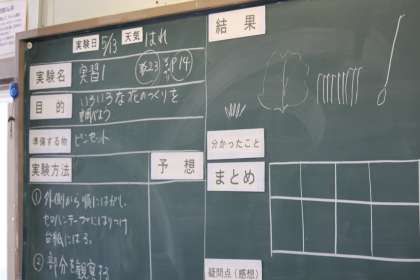 実験日 5/13 天気 はれ
実験名 実習1 P14
目的 いろいろな花のつくりを
調べよう
準備する物 ピンセット
実験方法 予想
① 外側から順にはがし、
セロハンテープにはりつけ
台紙にはる。
② 部分を観察する
結果
分かったこと
まとめ
疑問点（感想）